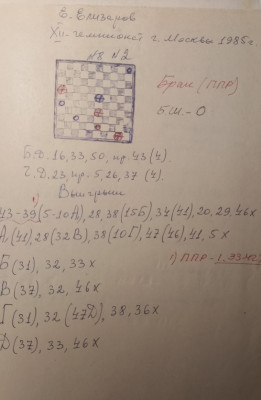 Е. Елизаров
XII чемпионат г. Москвы 1985 г.
№8 №2
Брак (ППР)
БШ - 0
Б.Д. 16, 33, 50, пр. 43 (4).
Ч.Д. 23, пр. 5, 26, 37 (4).
Выигрыш
1)
43-39 (5-10А), 28, 38 (15Б), 34 (41), 20, 29, 46х
А (41) 28 (32В), 38 (10Г), 47 (46), 41, 5х
Б (31), 32, 33х
1) ППР-1.
В (37), 32, 46х
Г (31), 32 (47Д), 38, 36х
Д (37), 33, 46х